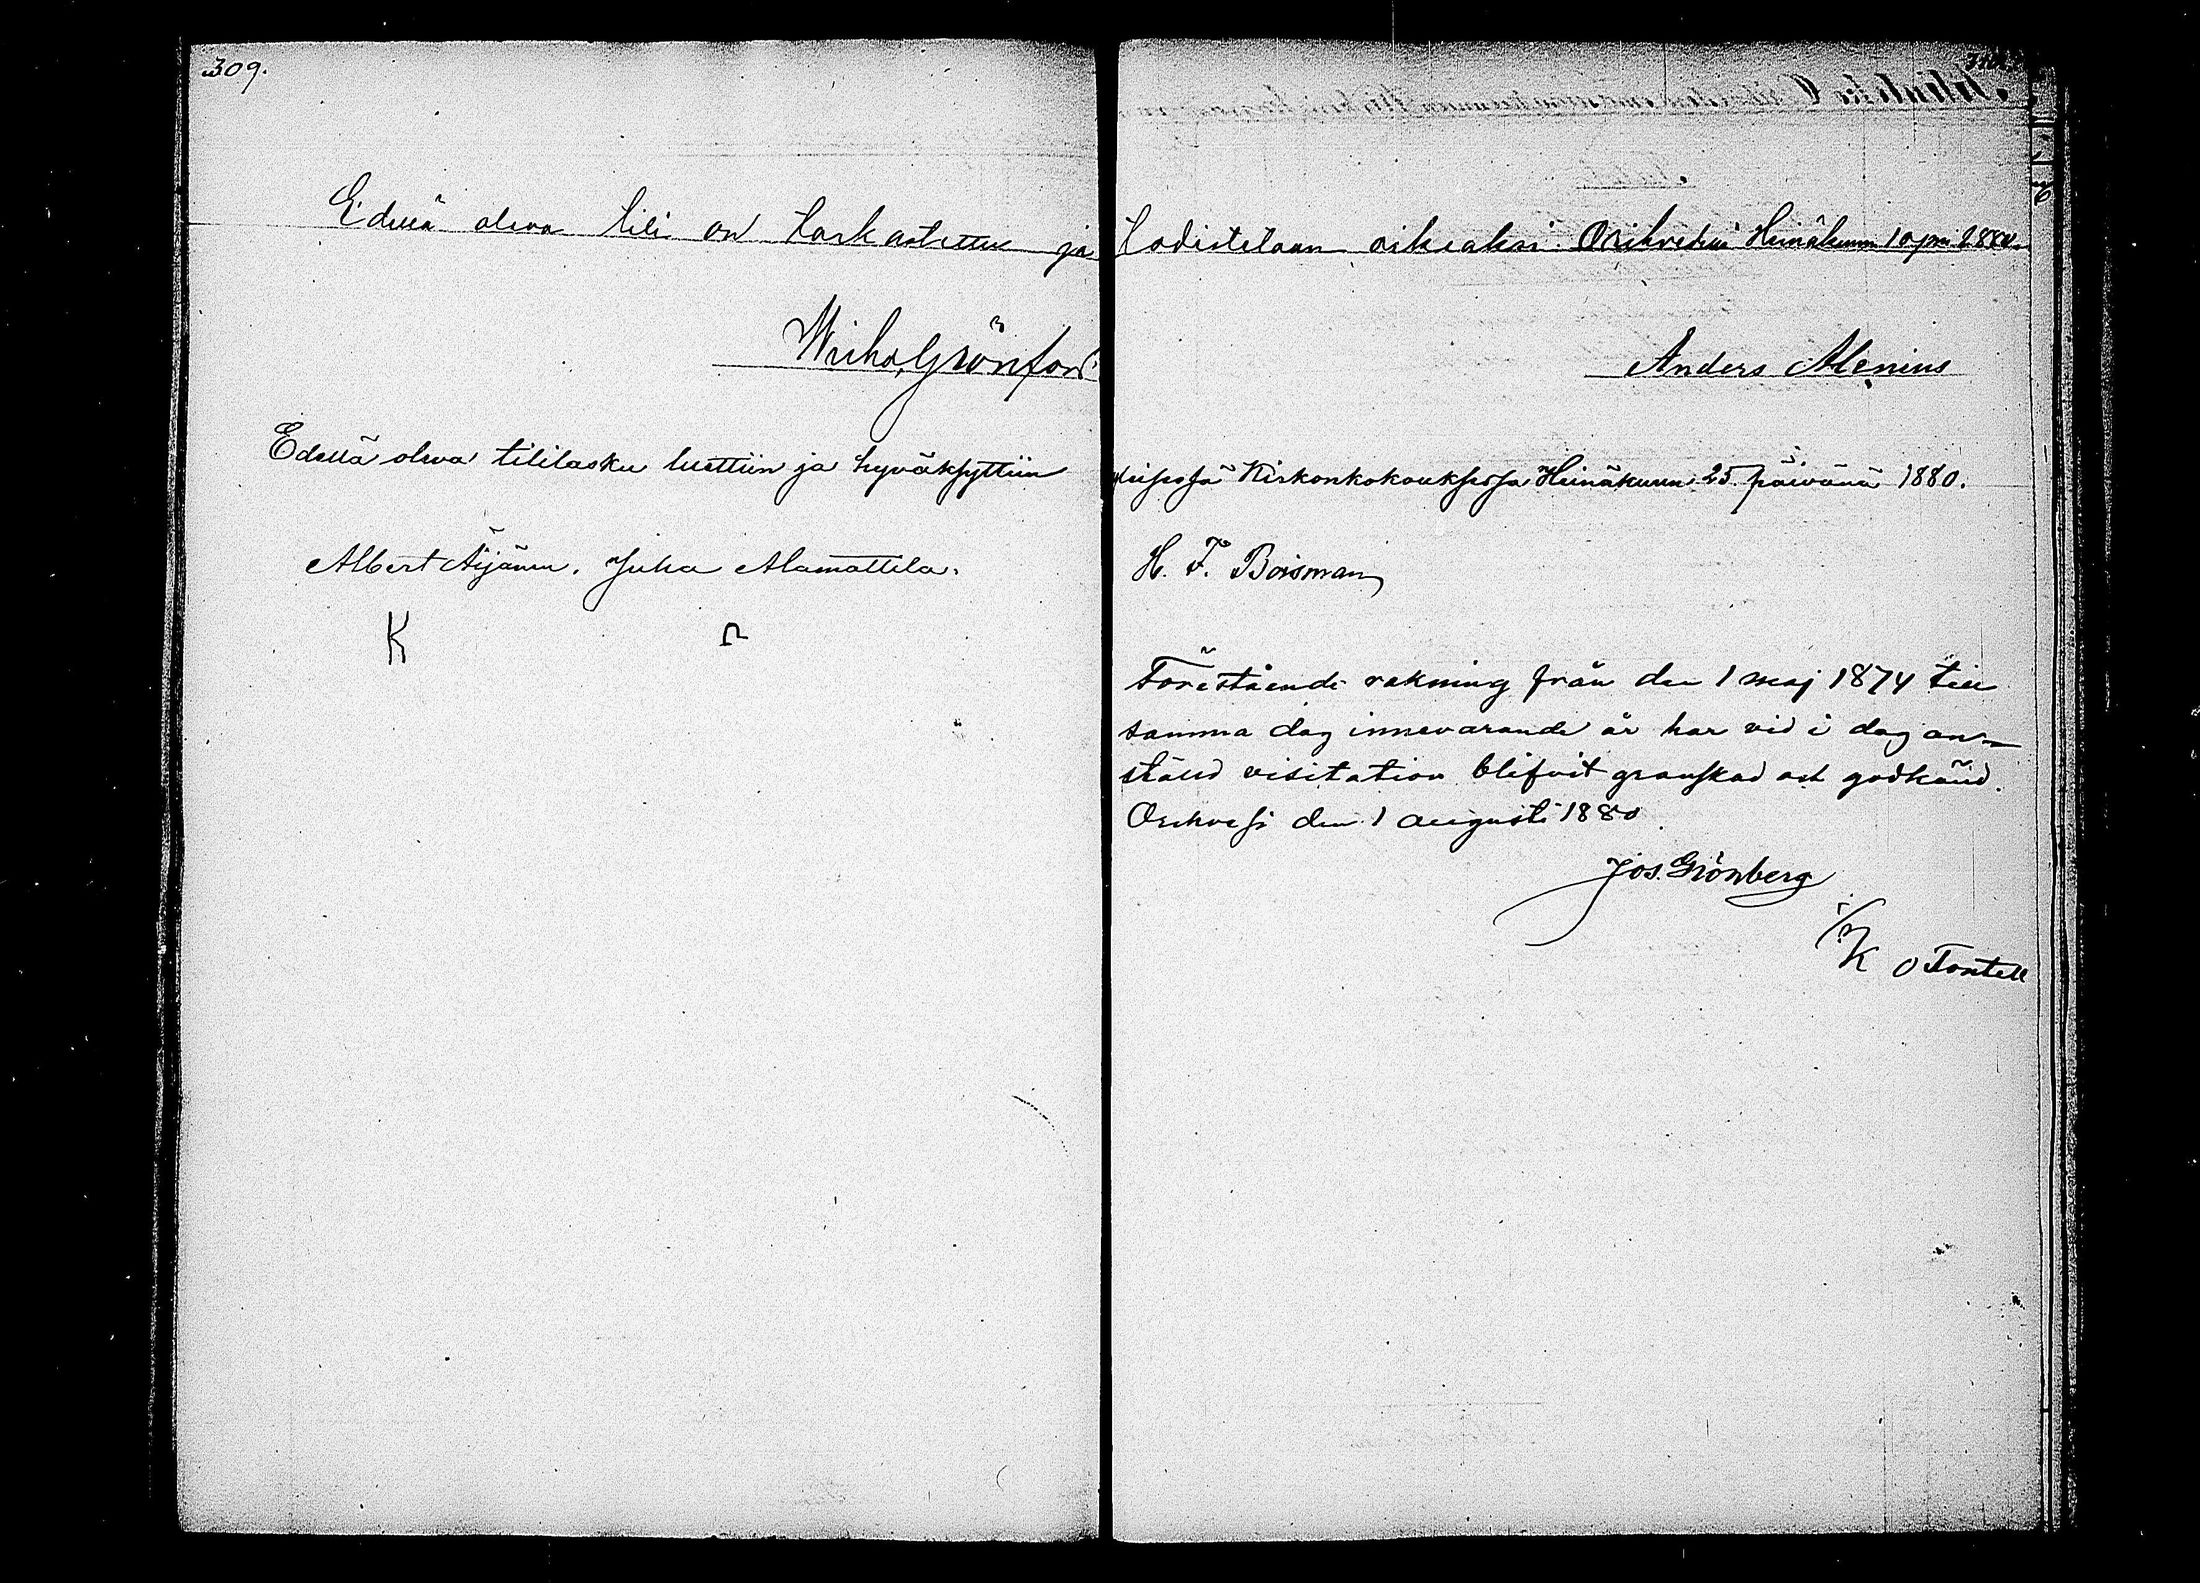 309.
Edellä oleva tili on tarkastettu ja todistetaan oikeaksi Orihvedeni Heinäkuun 10 pnä 1880.
Grönfors
Anders Alenius
Edellä oleva tililasku luettiin ja hyväksyttiin yleisessä Kirkonkokouksessa Heinäkuun 25 päivänä 1880.
Albert Äijänen. Juha Alamattila.
H. F. Boisman
K
Förestående räkning från den 1 maj 1874 till
samma dag innevarande år har vid i dag an-
ställd visitation blifvit granskad och godkänd.
Orihvesi den 1 augusti 1880.
Jos. Grönberg
K O Fontell